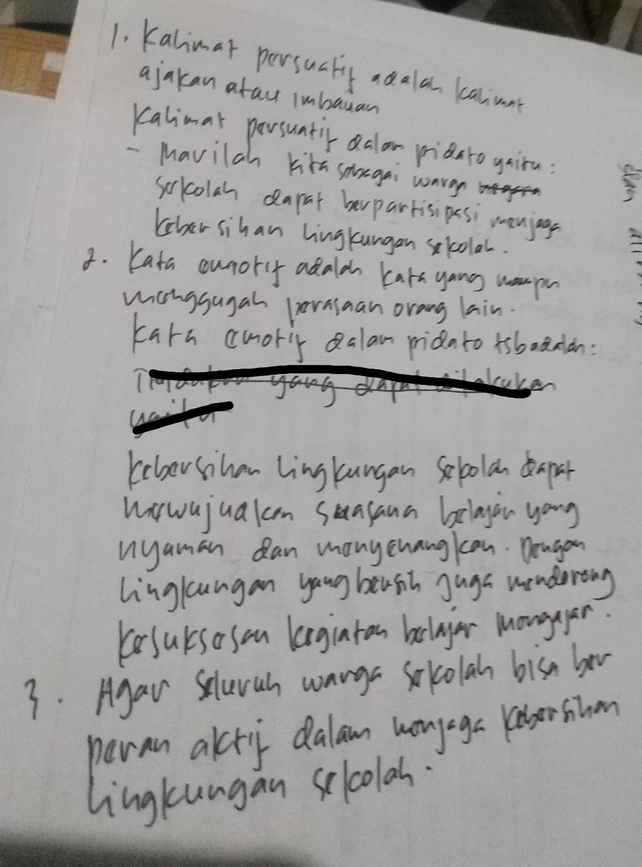 1. Kalimat persuatif adalah kalimat
ajakan atau imbauan
Kalimat persuatif dalam pidato yaitu:
- Marilah kita sebagai warga
sekolah dapat berpartisipasi menjaga
kebersihan lingkungan sekolah.
2. Kata emotif adalah kata yang mampu
menggugah perasaan orang lain.
Kata emotif dalam pidato tsb adalah:
Tindakan yang dapat dilakukan
yaitu
kebersihan lingkungan sekolah dapat
mewujudkan suasana belajar yang
nyaman dan menyenangkan. Dengan
lingkungan yang bersih juga mendorong
kesuksesan kegiatan belajar mengajar.
3. Agar seluruh warga sekolah bisa ber
peran aktif dalam menjaga kebersihan
lingkungan sekolah.
dan